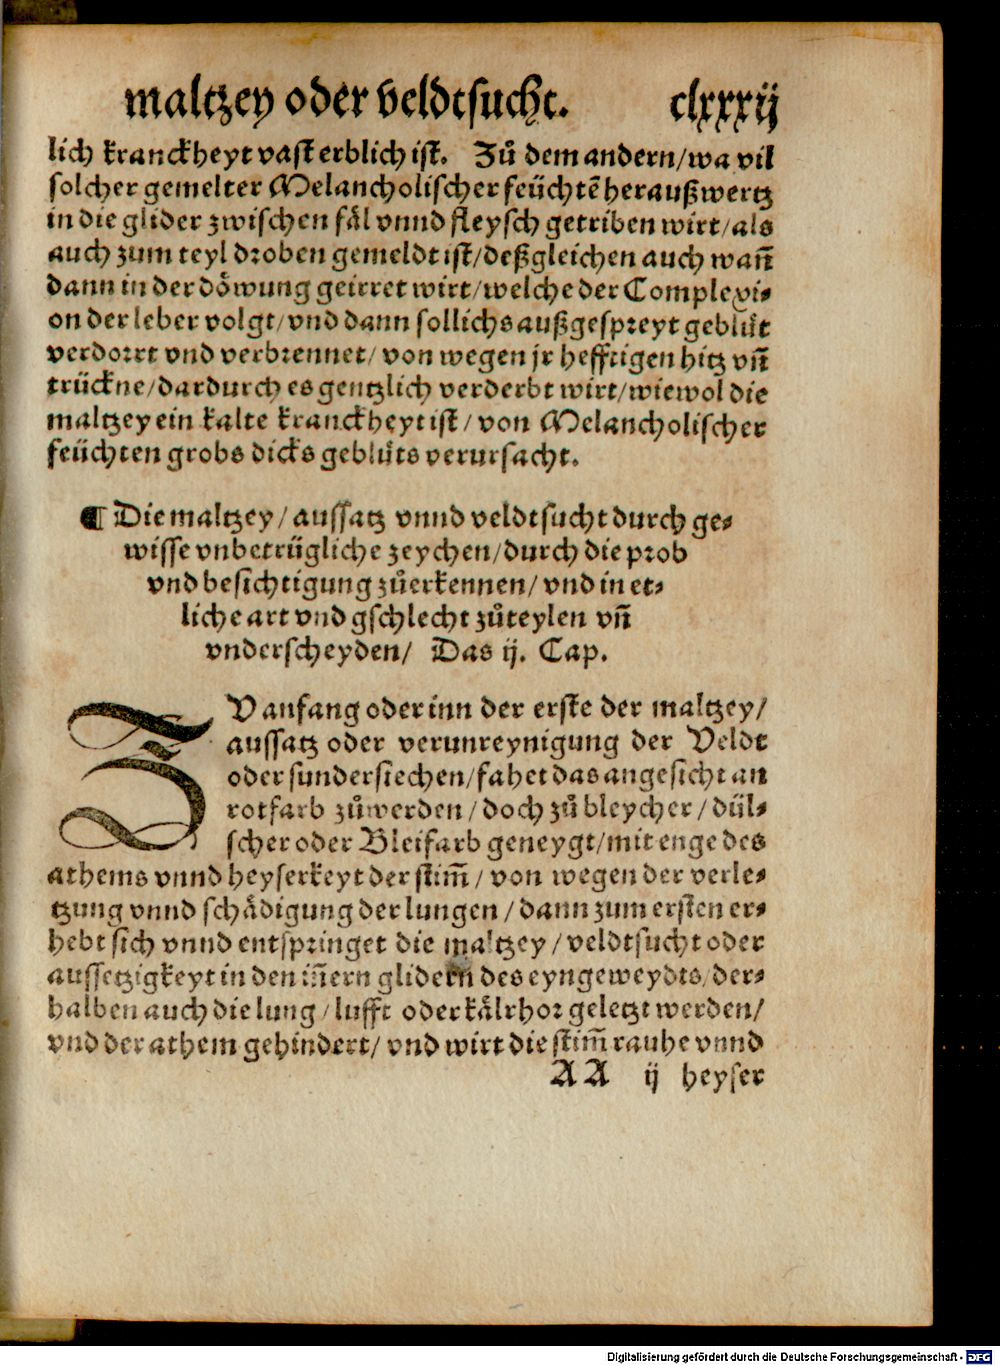 maltzey oder veldtsucht. clxxxij
lich kranckheyt vast erblich ist. Zů dem andern/wa vil
solcher gemelter Melancholischer feüchtẽ heraußwertz
in die glider zwischen fäl vnnd fleysch getriben wirt/als
auch zum teyl droben gemeldt ist/deßgleichen auch wañ
dann in der döwung geirret wirt/welche der Complexi⸗
on der leber volgt/vnd dann sollichs außgespreyt geblůt
verdorrt vnd verbrennet/von wegen jr hefftigen hitz vñ
trückne/dardurch es gentzlich verderbt wirt/wiewol die
maltzey ein kalte kranckheyt ist/von Melancholischer
feüchten grobs dicks geblůts verursacht.
¶ Die maltzey/aussatz vnnd veldtsucht durch ge⸗
wisse vnbetrügliche zeychen/durch die prob
vnd besichtigung zůerkennen/vnd in et⸗
liche art vnd gschlecht zůteylen vñ
vnderscheyden/ Das ij. Cap.
ZV anfang oder inn der erste der maltzey/
aussatz oder verunreynigung der Veldt
oder sundersiechen/fahet das angesicht an
rotfarb zůwerden/doch zů bleycher/dül⸗
scher oder Bleifarb geneygt/mit enge des
athems vnnd heyserkeyt der stim̃/von wegen der verle⸗
tzung vnnd schädigung der lungen/dann zum ersten er⸗
hebt sich vnnd entspringet die maltzey/veldtsucht oder
aussetzigkeyt in den iñern glidern des eyngeweydts/der⸗
halben auch die lung/lufft oder kälrhor geletzt werden/
vnd der athem gehindert/vnd wirt die stim̃ rauhe vnnd
AA ij heyser
Digitalisierung gefördert durch die Deutsche Forschungsgemeinschaft - DFG